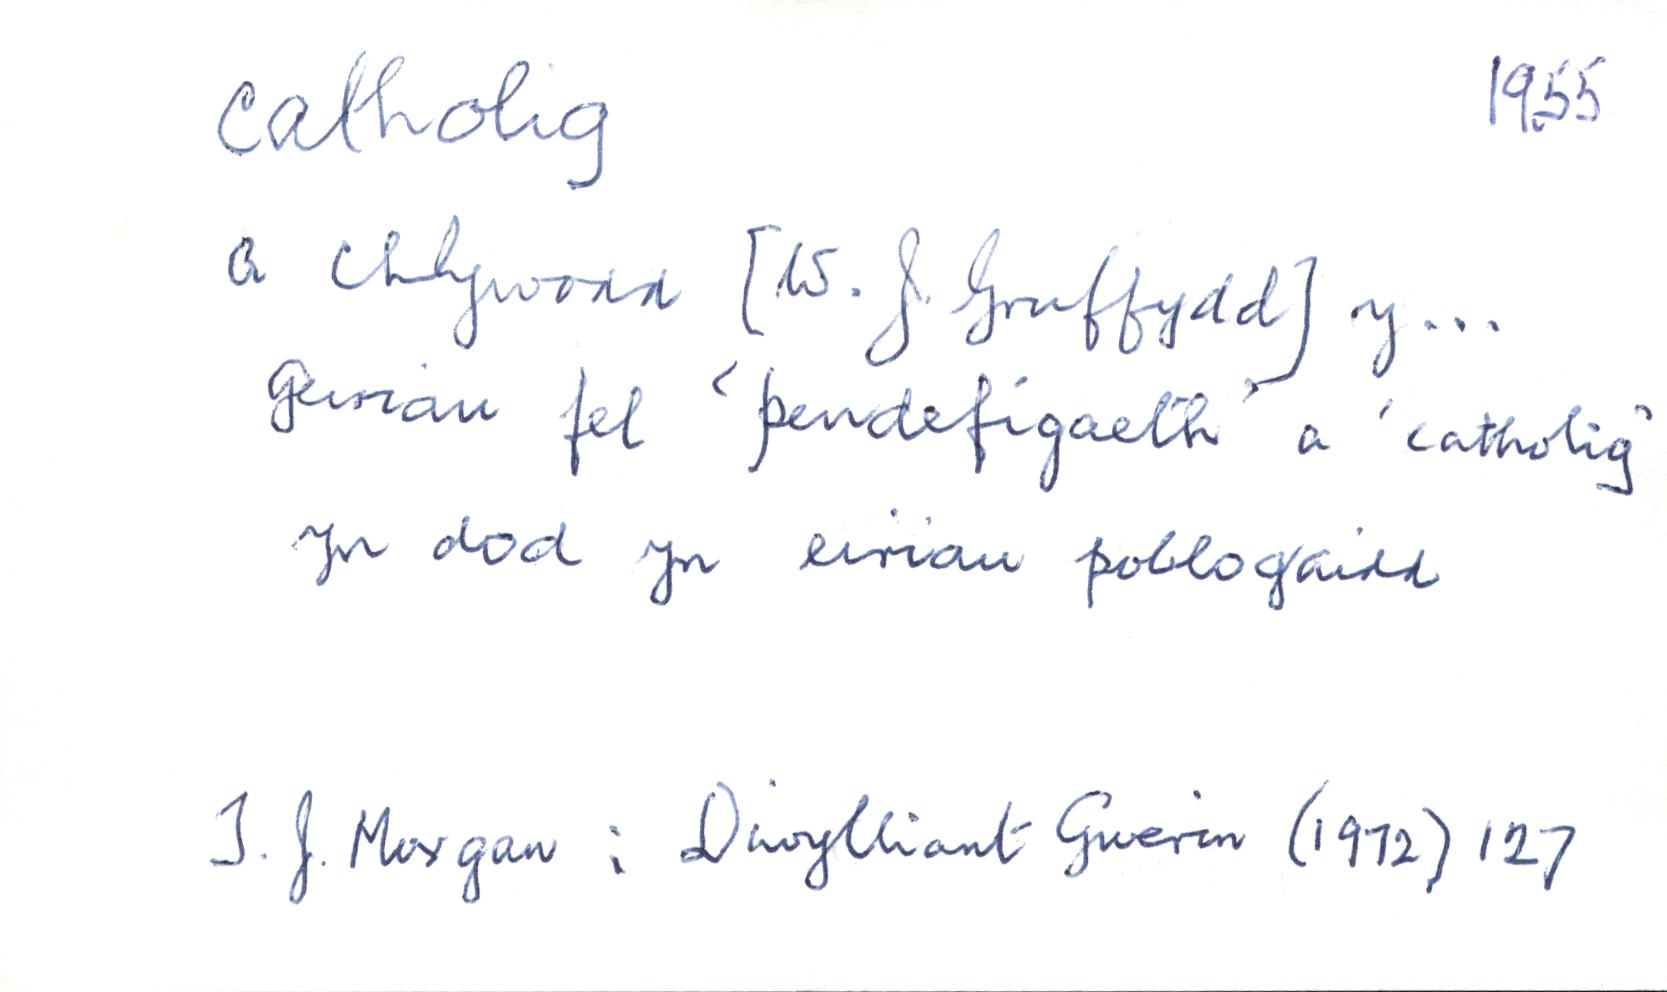 catholig 1955
a chlywodd [W. J. Gruffydd] y...
geiriau fel 'pendefigaeth' a 'catholig'
yn dod yn eiriau poblogaidd
T. J. Morgan : Diwylliant Gwerin (1972) 127